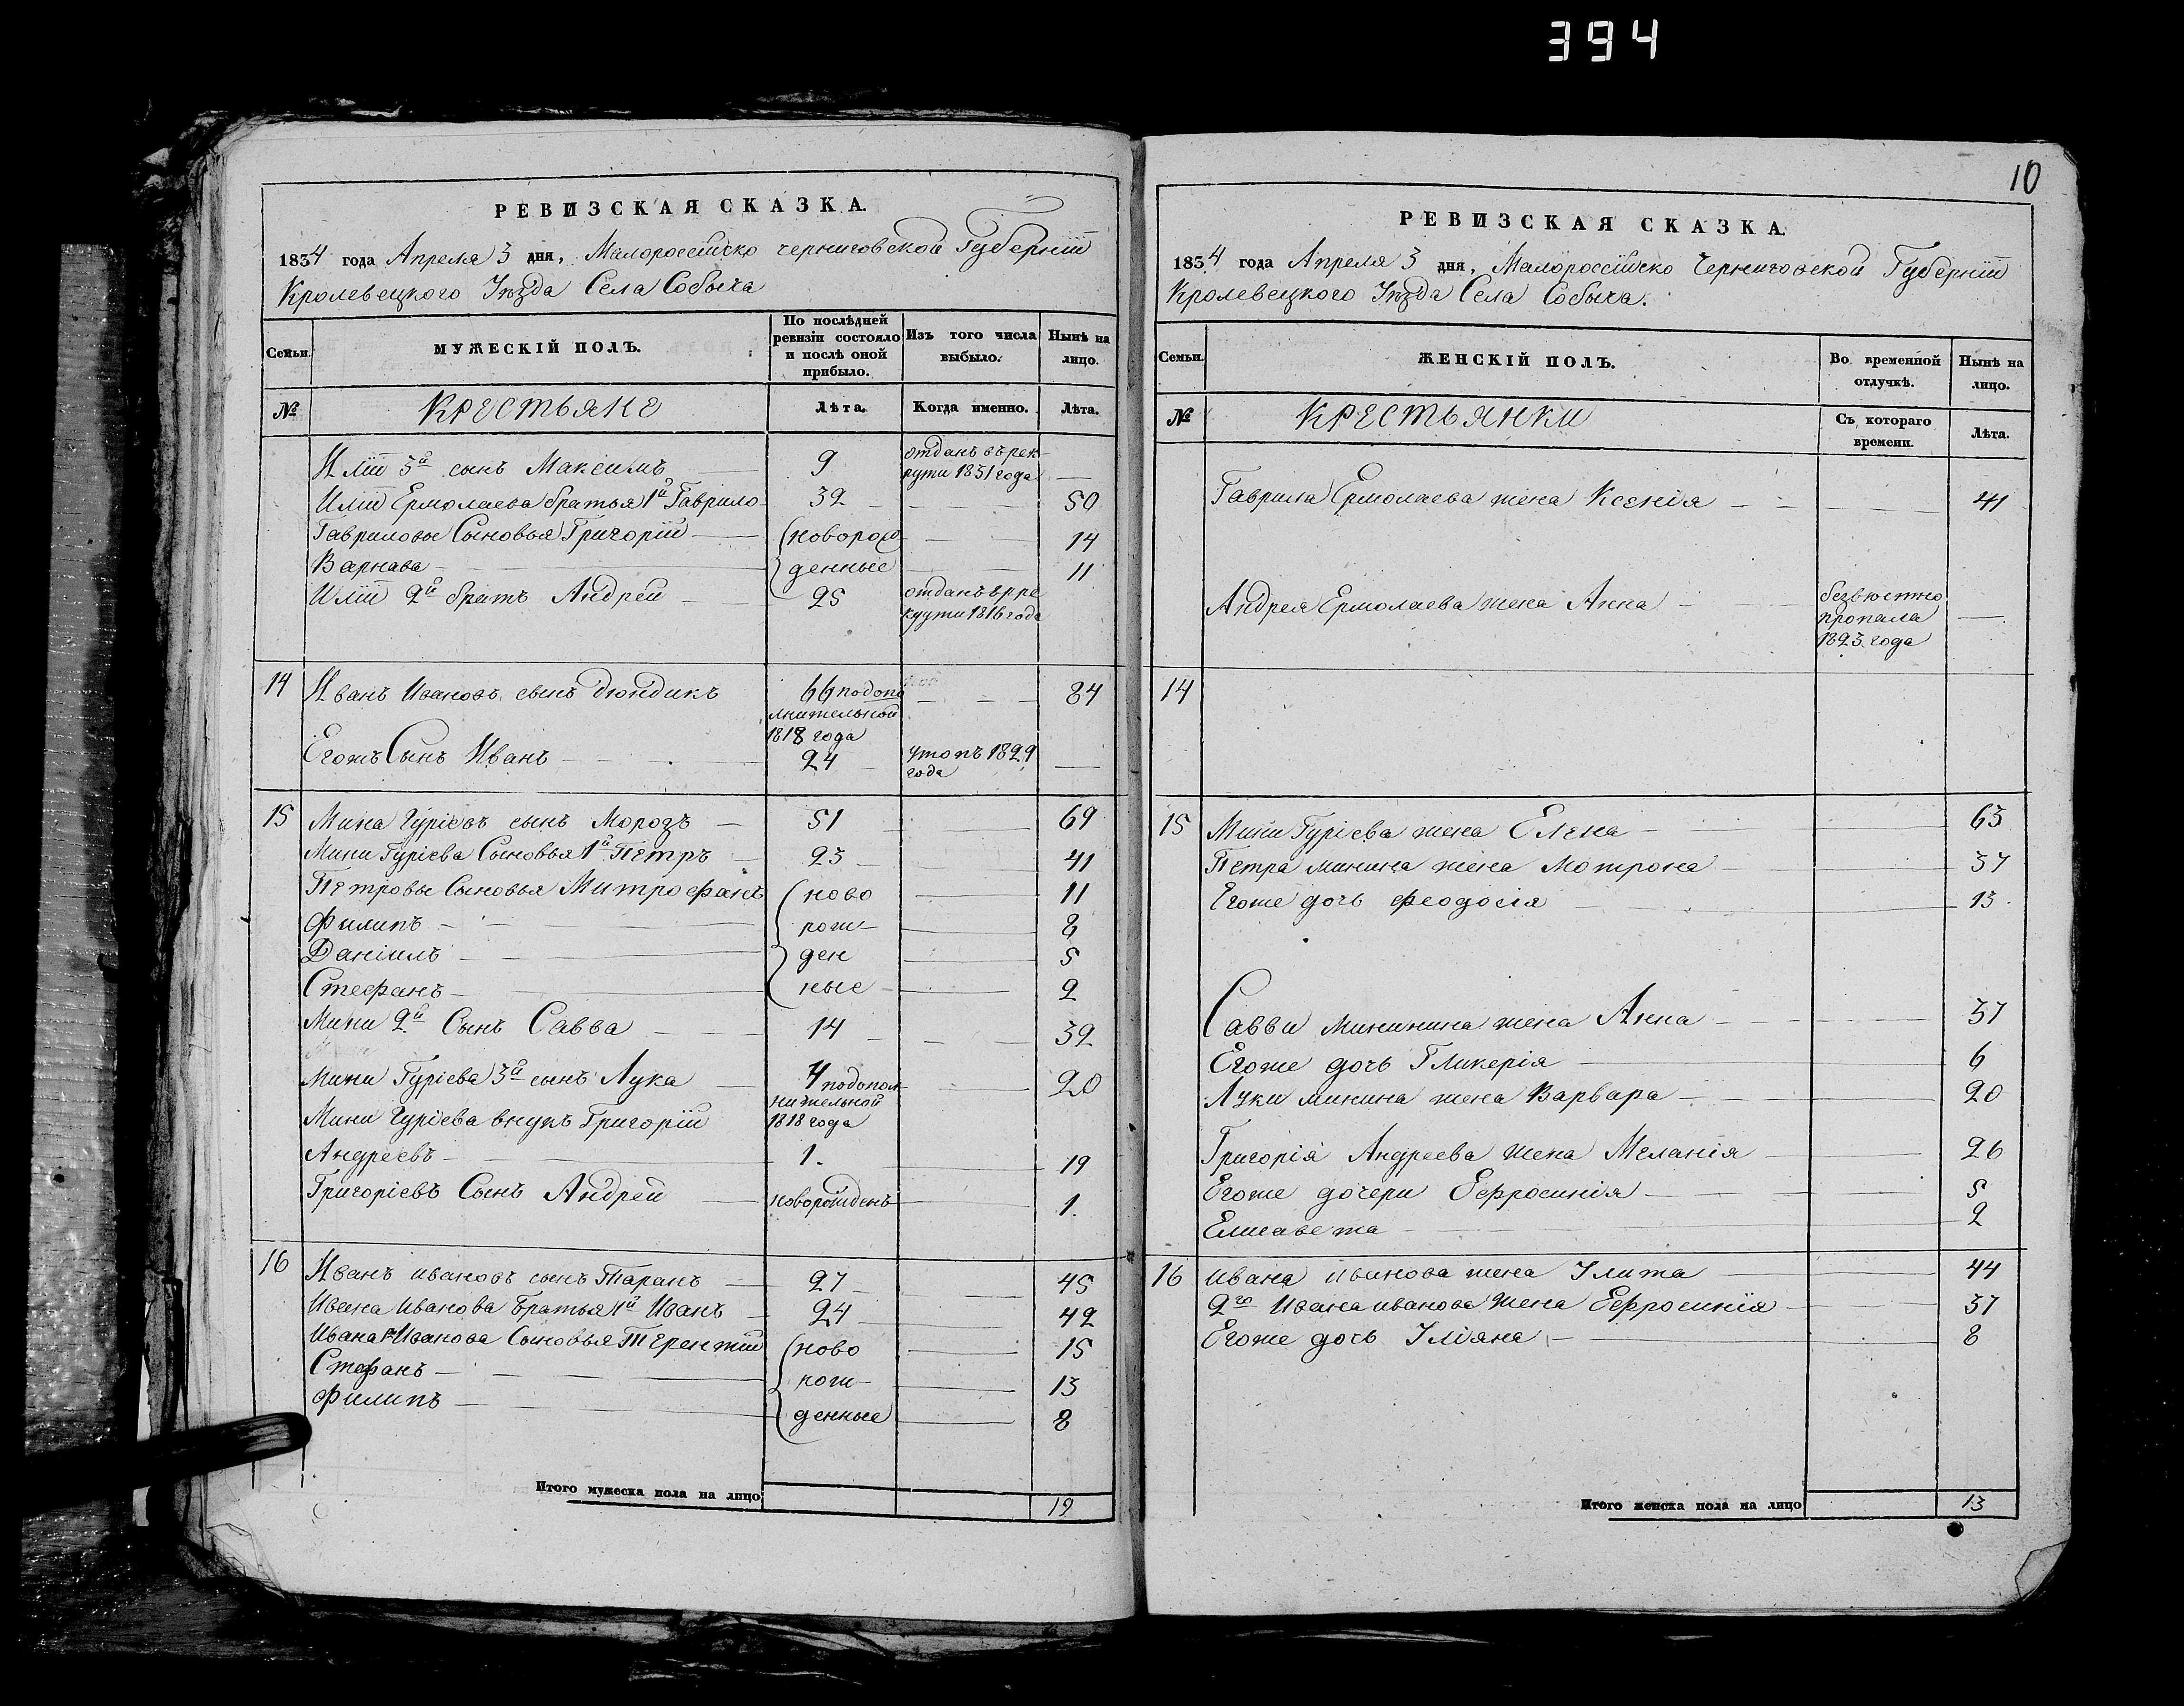 394
РЕВИЗСКАЯ СКАЗКА.
1834 года Апреля 3 дня, Малороссійско Черниговской Губерніи
Кролевецкого Уезда Села Собыча
Семьи. МУЖЕСКІЙ ПОЛЪ. По послѣдней ревизіи состояло и послѣ оной прибыло. Изъ того числа выбыло. Нынѣ на лицо.
№ Крестьяне Лѣта. Когда именно. Лѣта.
Иліи 3й сынъ Максимъ — 9 отданъ въ рек-
рути 1831 года —
Иліи Ермолаева братья 1й Гаврило 32 — 50
Гавриловы Сыновья Григорій — новорож 14
Варнава — денные 11
Иліи 2й братъ Андрей — 25 отданъ въ ре
крути 1816 года
14 Иванъ Ивановъ сынъ Дюндикъ 66 подопо — 84
лнительной
1818 года
Егожъ Сынъ Иванъ — 24 утопъ 1829
года —
15 Мина Гуріевъ сынъ Морозъ — 51 — 69
Мини Гуріева Сыновья 1й Петръ — 23 — 41
Петровы Сыновья Митрофанъ ново — 11
Филипъ — рож- — 8
Даніилъ — ден — 5
Стефанъ — ные — 2
Мини 2й Сынъ Савва — 14 — 32
Мини Гуріева 3й сынъ Лука — 4 подопол — 20
нительной
Мини Гуріева внукъ Григорій 1818 года
Андреевъ — 1. — 19
Григоріевъ Сынъ Андрей — новорожденъ — 1.
16 Иванъ Ивановъ сынъ Таранъ — 27 — 45
Ивана Иванова Братья 1й Иванъ — 24 — 42
Ивана Иванова Сыновья Терентій ново — 15
Стефанъ — рож- — 13
Филипъ — денные — 8
Итого мужеска пола на лицо 19
10
РЕВИЗСКАЯ СКАЗКА.
1834 года Апреля 3 дня, Малороссійско Черниговской Губерніи
Кролевецкого Уезда Села Собыча.
Семьи. ЖЕНСКІЙ ПОЛЪ. Во временной отлучкѣ. Нынѣ на лицо.
№ Крестьянки Съ котораго времени. Лѣта.
Гаврила Ермолаева жена Ксенія — 41
Андрея Ермолаева жена Анна — безвестно
пропала —
1823 года
14
15 Мини Гуріева жена Елена — 63
Петра Минина жена Мотрона — 37
Егоже дочь Феодосія — 13.
Савви Минина жена Анна — 37
Егоже дочь Гликерія — 6
Луки Минина жена Варвара — 20
Григорія Андреева жена Меланія — 26
Егоже дочери Ефросинія — 5
Елисавета — 2
16 Ивана Иванова жена Улита — 44
2го Ивана Иванова жена Ефросинія — 37
Егоже дочь Уліяна — 8
Итого женска пола на лицо 13